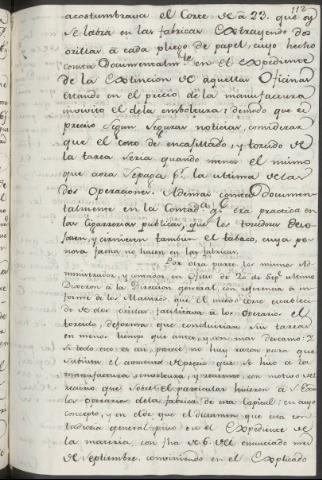 112
acostumbrava el Corte de à 23. que oy
se labra en las fabricas extrayendo dos
orillas à cada pliego de papel, cuyo hecho
consta Documentalmte. en el expediente
de la extincion de aquellas Oficinas
estando en el precio de la manufactura
inovito el de la emboltura: demodo que el
precio segun seguras noticias, consideran
que el costo de encasillado, y torcido de
la tarea seria quando menos el mismo
que aora sepaga pr. la ultima de las
dos Operaciones. Ademas consta documen-
talmente en la Contadª. qe. era practica en
las Cigarrerias publicas, que los torcedores deso-
jasen, y cirniesen tambien el tabaco, cuya pe-
nosa faena no hacen en las fabricas.
Por otra parte los mismos Ad-
ministrador, y contador, en Oficio de 20 de Sepe. ultimo
Dixeron à la Direccion general, con referencia à in-
forme de los Maestros que el nuevo corte estableci-
do de dos orillas, facilitava à los operarios el
torcido, deforma que concluirian sus tareas
en menos tiempo que antes, y con mas descanso: Y
si todo esto es asi, parece no huy razon para que
subsista el aumento de precio que se hizo à la
manufactura
recurso que sobre el particular hicieron à V. Exa.
los operarios de la fabrica de esta Capital: en cuyo
concepto, y en el de que el dictamen que esta con-
taduria general puso en el Expediente de
la materia, con fha de 6. del enunciado mes
de Septiembre, conviniendo en el explicado